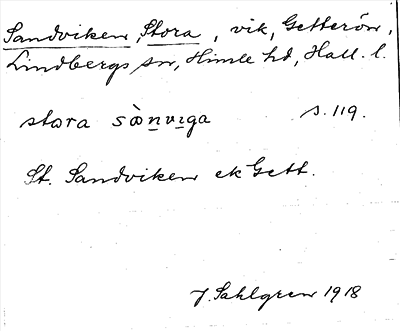 Sandviken, Stora, vik, Getterön,
Lindbergs sn, Himle hd, Hall. l.
stora sànviga s. 119.
St. Sandviken ek Gett.
J. Sahlgren 1918